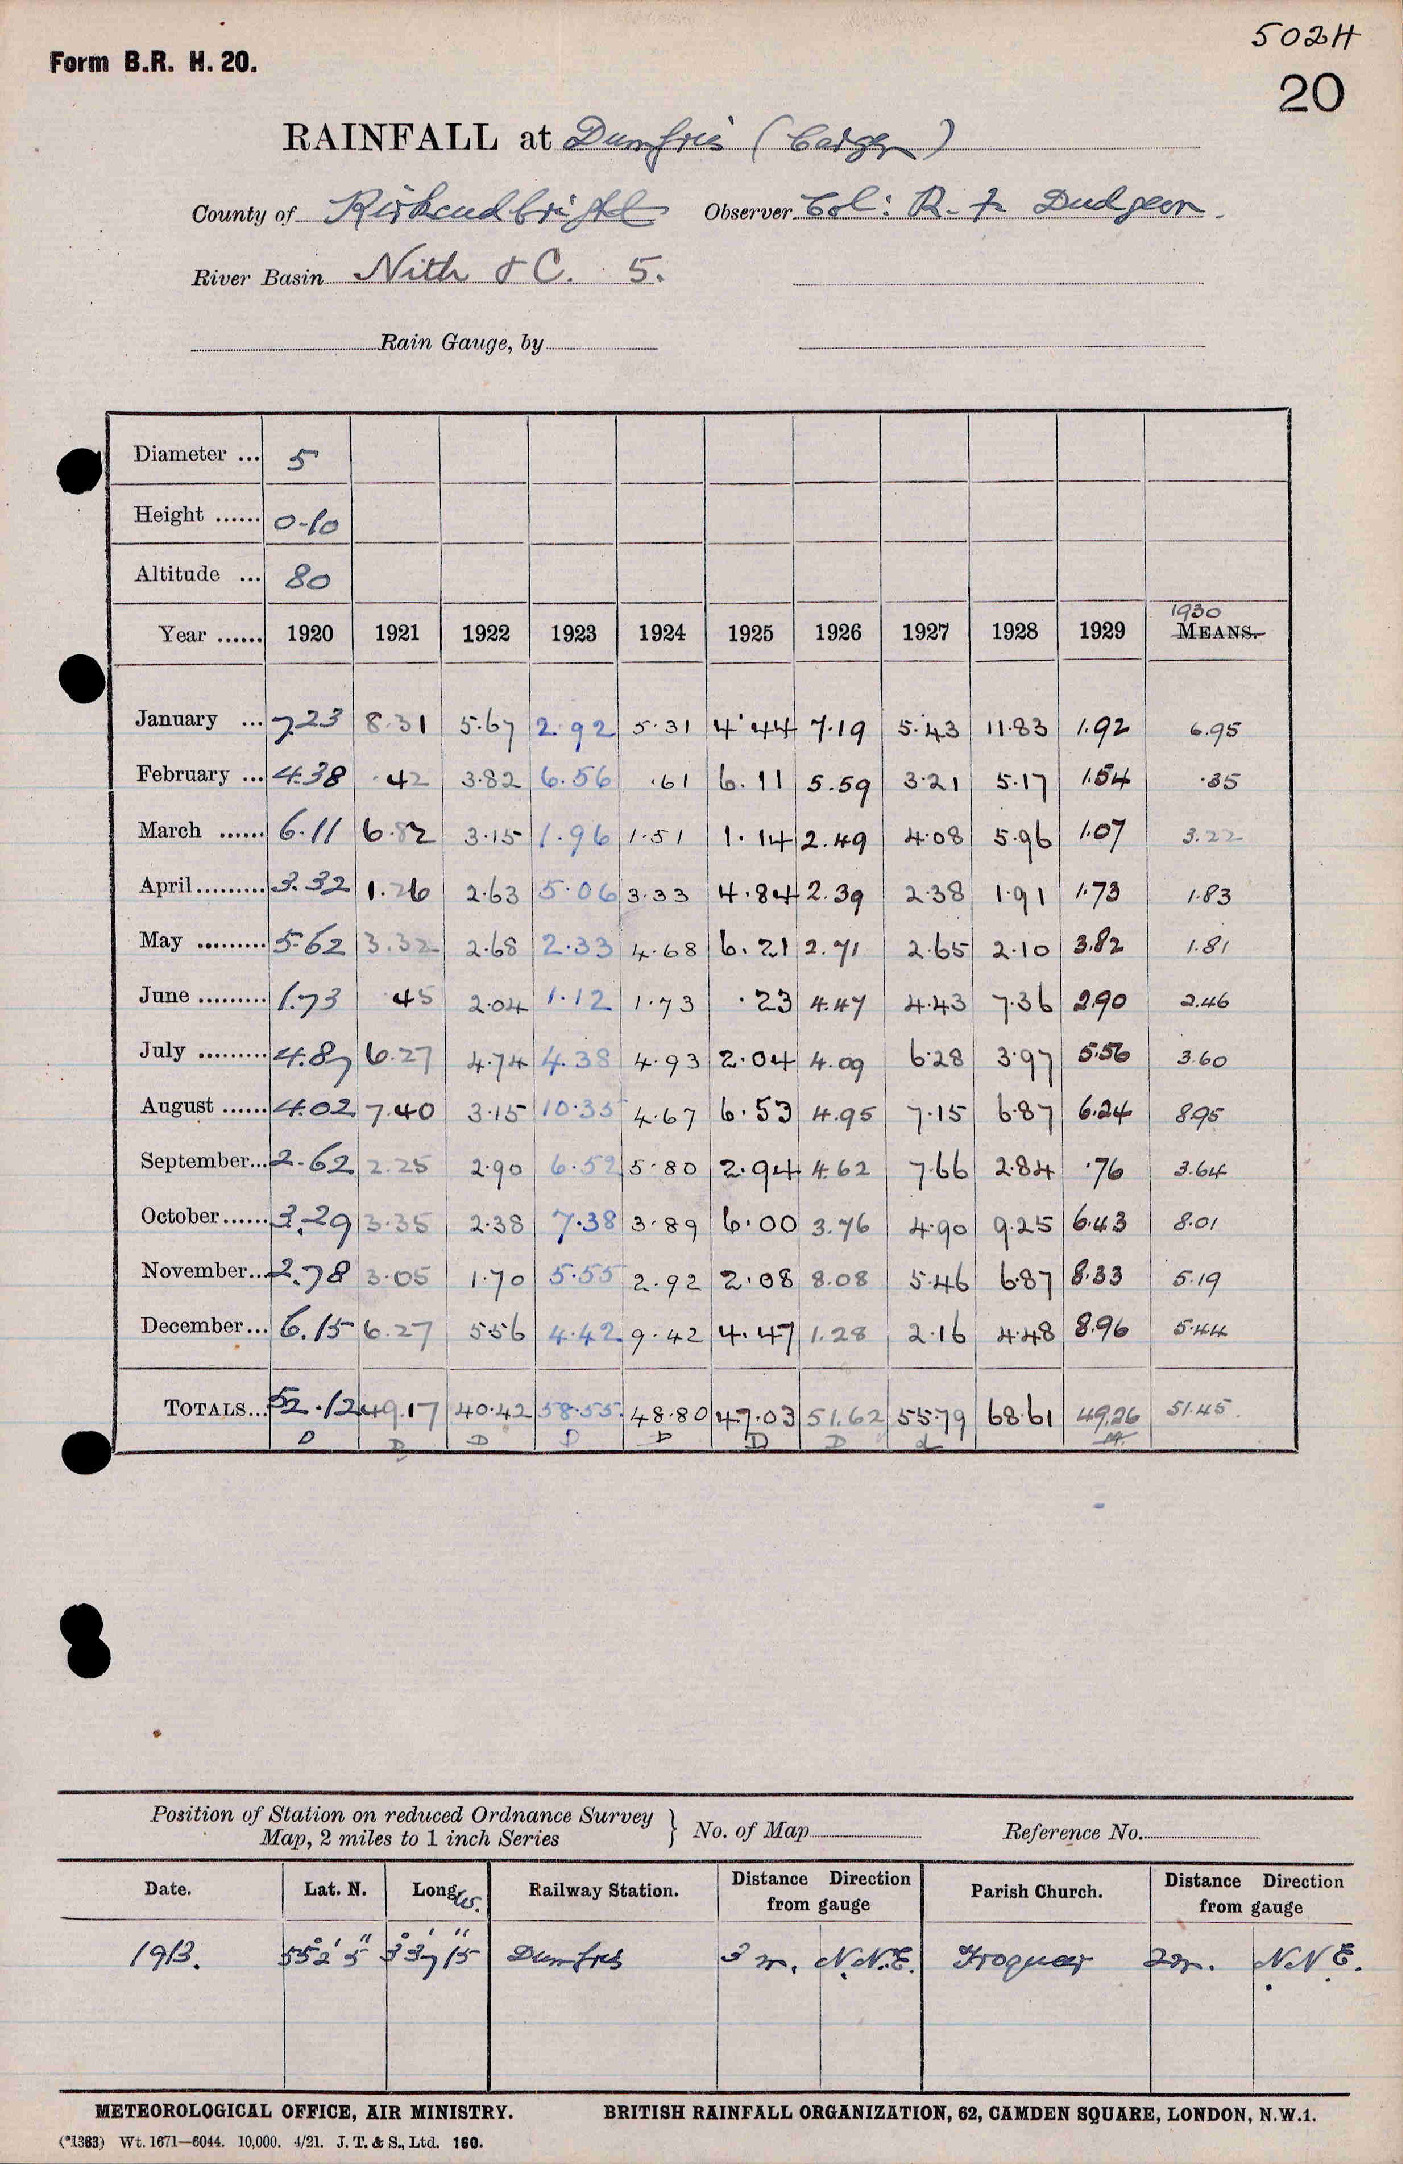 502H
Form B.R. H. 20.
20
RAINFALL at Dumfries (Cargen)
County of Kirkcudbright Observer Col: R. F. Dudgeon.
River Basin Nith & C. 5.
Rain Gauge, by
Diameter ... 5
Height ...... 0-10
Altitude ... 80
1930
Year ...... 1920 1921 1922 1923 1924 1925 1926 1927 1928 1929 MEANS.
January ... 7.23 8.31 5.67 2.92 5.31 4.44 7.19 5.43 11.83 1.92 6.95
February ... 4.38 .42 3.82 6.56 .61 6.11 5.59 3.21 5.17 1.54 .35
March ...... 6.11 6.82 3.15 1.96 1.51 1.14 2.49 4.08 5.96 1.07 3.22
April......... 3.32 1.26 2.63 5.06 3.33 4.84 2.39 2.38 1.91 1.73 1.83
May ......... 5.62 3.32 2.68 2.33 4.68 6.21 2.71 2.65 2.10 3.82 1.81
June ......... 1.73 .45 2.04 1.12 1.73 .23 4.47 4.43 7.36 2.90 2.46
July ......... 4.87 6.27 4.74 4.38 4.93 2.04 4.09 6.28 3.97 5.56 3.60
August ...... 4.02 7.40 3.15 10.35 4.67 6.53 4.95 7.15 6.87 6.24 8.95
September... 2.62 2.25 2.90 6.52 5.80 2.94 4.62 7.66 2.84 .76 3.64
October...... 3.29 3.35 2.38 7.38 3.89 6.00 3.76 4.90 9.25 6.43 8.01
November... 2.78 3.05 1.70 5.55 2.92 2.08 8.08 5.46 6.87 8.33 5.19
December... 6.15 6.27 5.56 4.42 9.42 4.47 1.28 2.16 4.48 8.96 5.44
TOTALS... 52.12 49.17 40.42 58.55 48.80 47.03 51.62 55.79 68.61 49.26 51.45
D D D D D D D
Position of Station on reduced Ordnance Survey
Map, 2 miles to 1 inch Series } No. of Map Reference No.
Date. Lat. N. Long. W. Railway Station. Distance Direction from gauge Parish Church. Distance Direction from gauge
1913. 55° 2' 5" 3° 37' 15" Dumfries 3 m. N.N.E. Troqueer 2 m. N N E.
METEOROLOGICAL OFFICE, AIR MINISTRY. BRITISH RAINFALL ORGANIZATION, 62, CAMDEN SQUARE, LONDON, N.W.1.
(*1383) Wt. 1671—6044. 10,000. 4/21. J. T. & S., Ltd. 160.